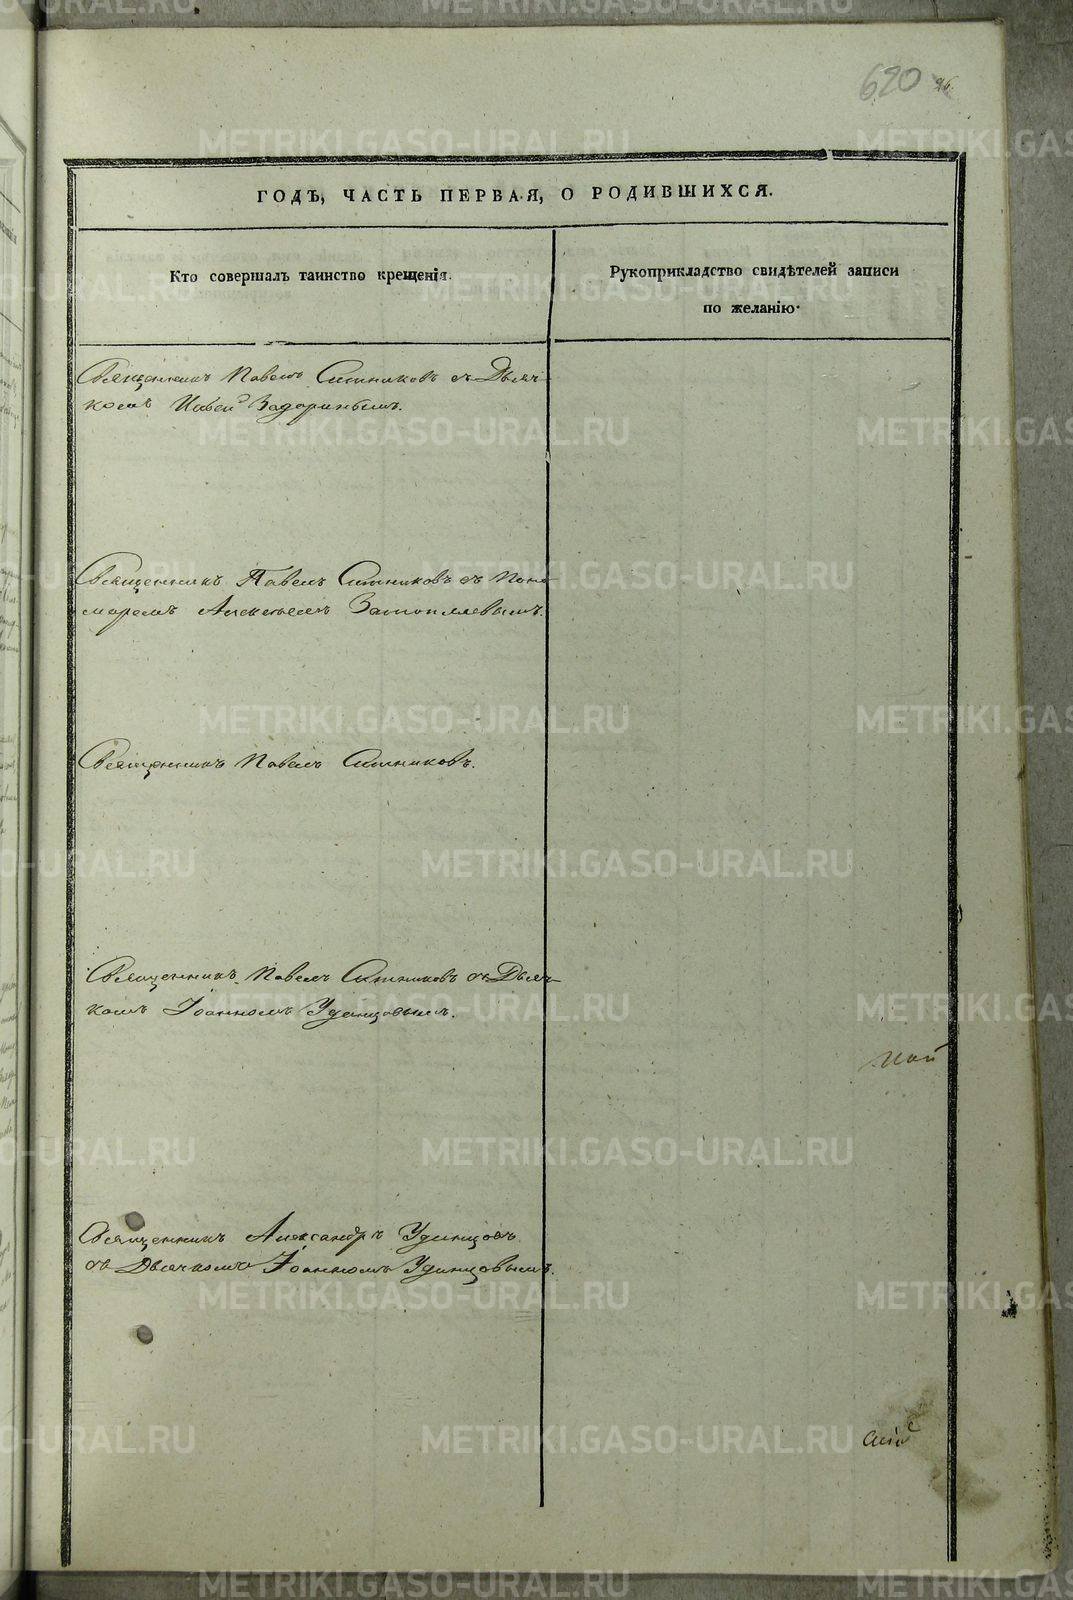 620 96.
ГОДЪ, ЧАСТЬ ПЕРВАЯ, О РОДИВШИХСЯ.
Кто совершалъ таинство крещенія.
Рукоприкладство свидѣтелей записи
по желанію.
Священникъ Павелъ Ситниковъ съ Дьяч-
комъ Задоринымъ.
Священникъ Павелъ Ситниковъ съ Поно-
маремъ Алексѣемъ Затопляевымъ.
Священникъ Павелъ Ситниковъ.
Священникъ Павелъ Ситниковъ съ Дьяч-
комъ Іоанномъ Удинцовымъ.
Священникъ Александръ Удинцовъ
съ Дьячкомъ Іоанномъ Удинцовымъ.
METRIKI.GASO-URAL.RU